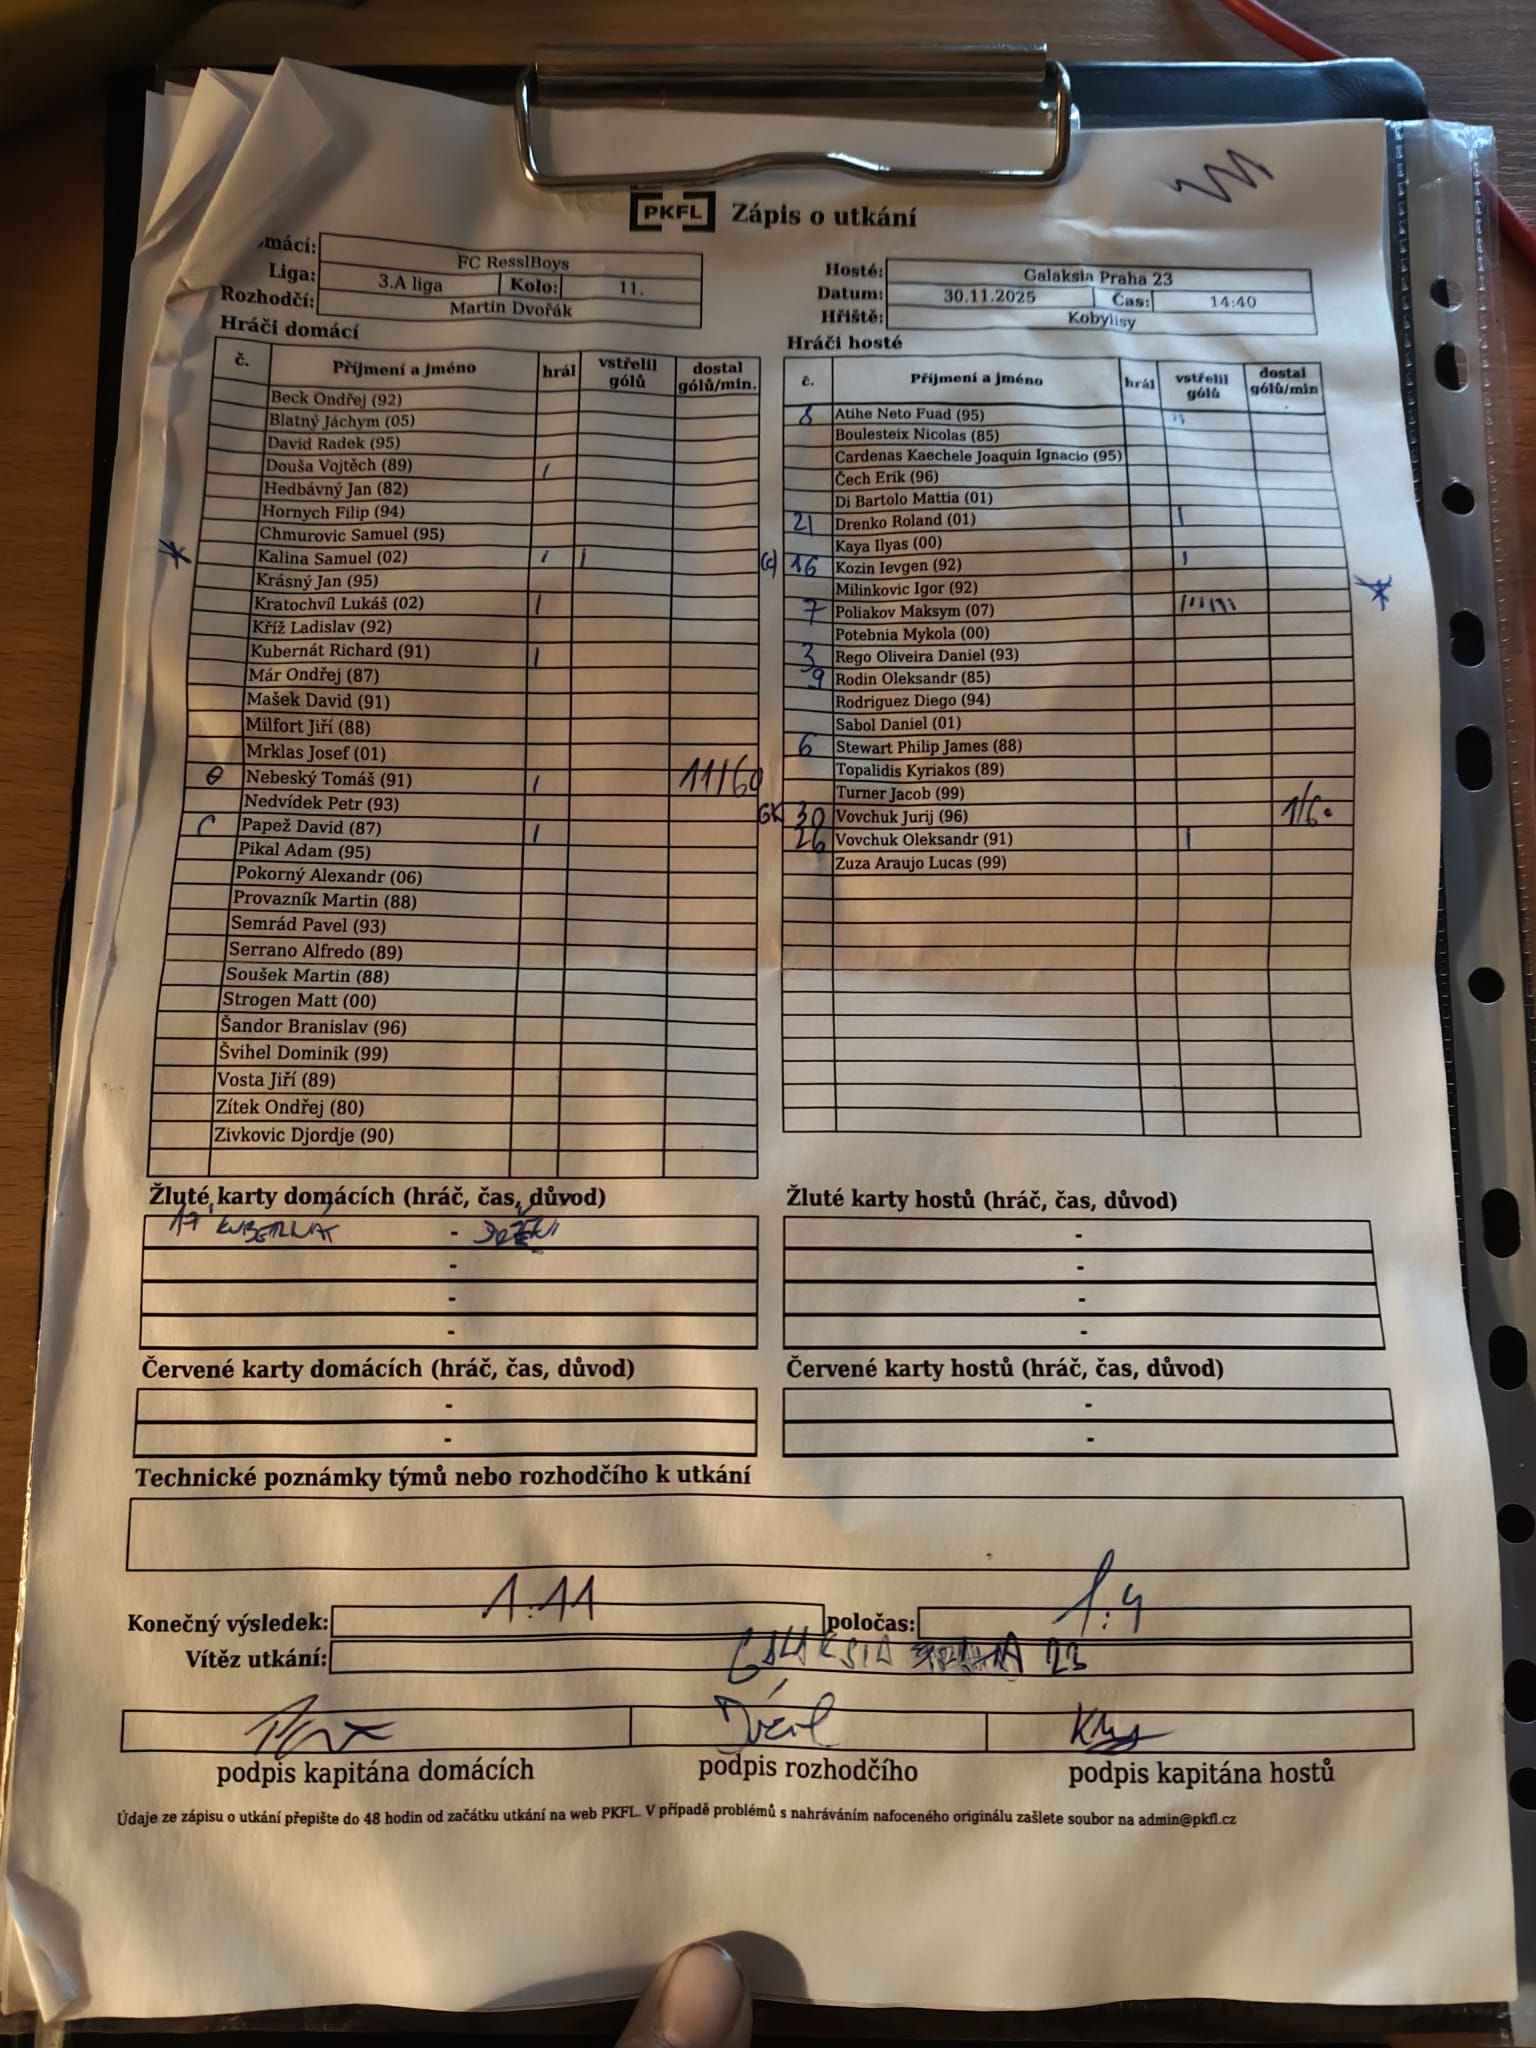 PKFL Zápis o utkání
mácí: FC ResslBoys
Liga: 3.A liga Kolo: 11.
Rozhodčí: Martin Dvořák
Hosté: Galaksia Praha 23
Datum: 30.11.2025 Čas: 14:40
Hřiště: Kobylisy
Hráči domácí
č. Příjmení a jméno hrál vstřelil gólů dostal gólů/min.
Beck Ondřej (92)
Blatný Jáchym (05)
David Radek (95)
Douša Vojtěch (89) /
Hedbávný Jan (82)
Hornych Filip (94)
Chmurovic Samuel (95)
* Kalina Samuel (02) / |
Krásný Jan (95)
Kratochvíl Lukáš (02) /
Kříž Ladislav (92)
Kubernát Richard (91) /
Már Ondřej (87)
Mašek David (91)
Milfort Jiří (88)
Mrklas Josef (01)
Nebeský Tomáš (91) / 11/60
Nedvídek Petr (93)
C Papež David (87) /
Pikal Adam (95)
Pokorný Alexandr (06)
Provazník Martin (88)
Semrád Pavel (93)
Serrano Alfredo (89)
Soušek Martin (88)
Strogen Matt (00)
Šandor Branislav (96)
Švihel Dominik (99)
Vosta Jiří (89)
Zítek Ondřej (80)
Zivkovic Djordje (90)
Hráči hosté
č. Příjmení a jméno hrál vstřelil gólů dostal gólů/min
8 Atihe Neto Fuad (95) ||
Boulesteix Nicolas (85)
Cardenas Kaechele Joaquin Ignacio (95)
Čech Erik (96)
Di Bartolo Mattia (01)
21 Drenko Roland (01) |
Kaya Ilyas (00)
(c) 16 Kozin Ievgen (92) |
Milinkovic Igor (92)
7 Poliakov Maksym (07) |||||| *
Potebnia Mykola (00)
3 Rego Oliveira Daniel (93)
9 Rodin Oleksandr (85)
Rodriguez Diego (94)
Sabol Daniel (01)
6 Stewart Philip James (88)
Topalidis Kyriakos (89)
Turner Jacob (99)
GK 30 Vovchuk Jurij (96) 1/60
26 Vovchuk Oleksandr (91) |
Zuza Araujo Lucas (99)
Žluté karty domácích (hráč, čas, důvod)
17' KUBERNÁT - DRŽENÍ
-
-
-
Žluté karty hostů (hráč, čas, důvod)
-
-
-
-
Červené karty domácích (hráč, čas, důvod)
-
-
Červené karty hostů (hráč, čas, důvod)
-
-
Technické poznámky týmů nebo rozhodčího k utkání
Konečný výsledek: 1:11 poločas: 1:4
Vítěz utkání: GALAKSIA PRAHA 23
podpis kapitána domácích podpis rozhodčího podpis kapitána hostů
Údaje ze zápisu o utkání přepište do 48 hodin od začátku utkání na web PKFL. V případě problémů s nahráváním nafoceného originálu zašlete soubor na admin@pkfl.cz